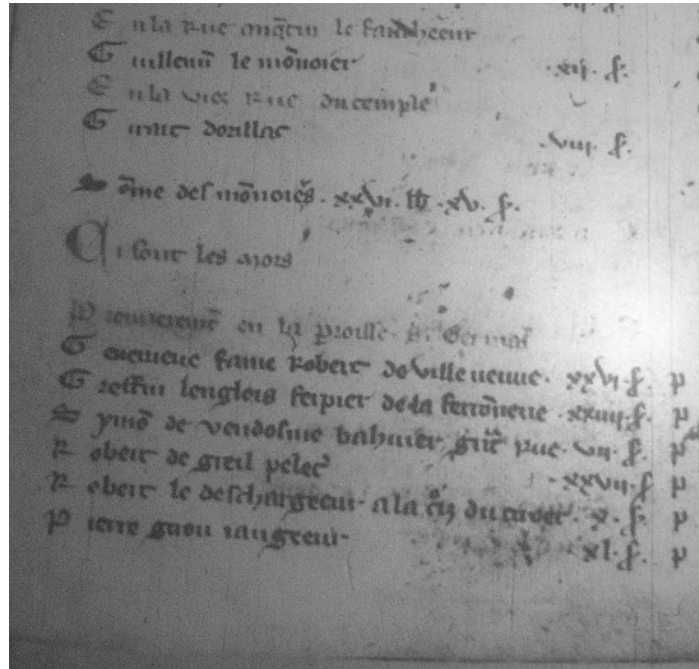 E n la rue onq̄tin le fauchceur
G uilleum̄ le mōnoier .xij. s̄.
E n la viez rue du temple
G uiart dorillac .viij. s̄.
S ōme des mōnoiers. xxvi. lb. xv. s̄.
Ci sont les mors
P remieremēt en la paroisse s. Germai
G enevieve fame Robert de ville neuve. xxvi. s̄. p
G reffin lenglois ferpier de la ferrōnerie. xxiiij. s̄. p
S ymō de vendosme bahuier rue. vij. s̄. p
R obert de greil pelet .xxvij. s̄. p
R obert le deschargeeur. a la du . x. s̄. p
P ierre xl. s̄. p